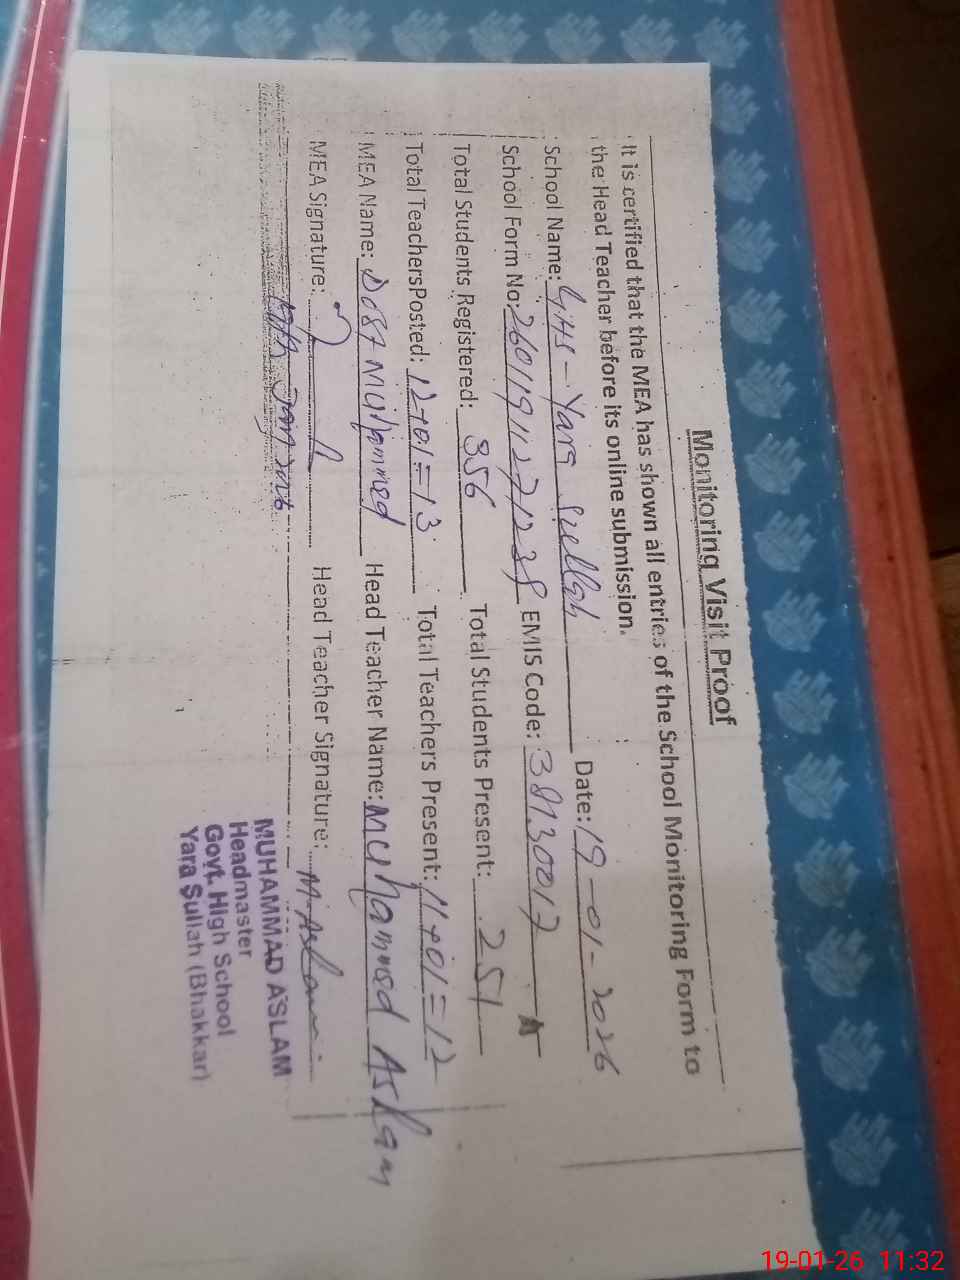 Monitoring Visit Proof
It is certified that the MEA has shown all entries of the School Monitoring Form to
the Head Teacher before its online submission.
School Name: GHS - Yara Sullah Date: 19-01-2026
School Form No: 26011911271238 EMIS Code: 38130017
Total Students Registered: 356 Total Students Present: 251
Total TeachersPosted: 12+01=13 Total Teachers Present: 11+01=12
MEA Name: Dost Muhammad Head Teacher Name: Muhammad Aslam
MEA Signature: Head Teacher Signature: M.Aslam
19th Jan 2026
MUHAMMAD ASLAM
Headmaster
Govt. High School
Yara Sullah (Bhakkar)
19-01-26 11:32